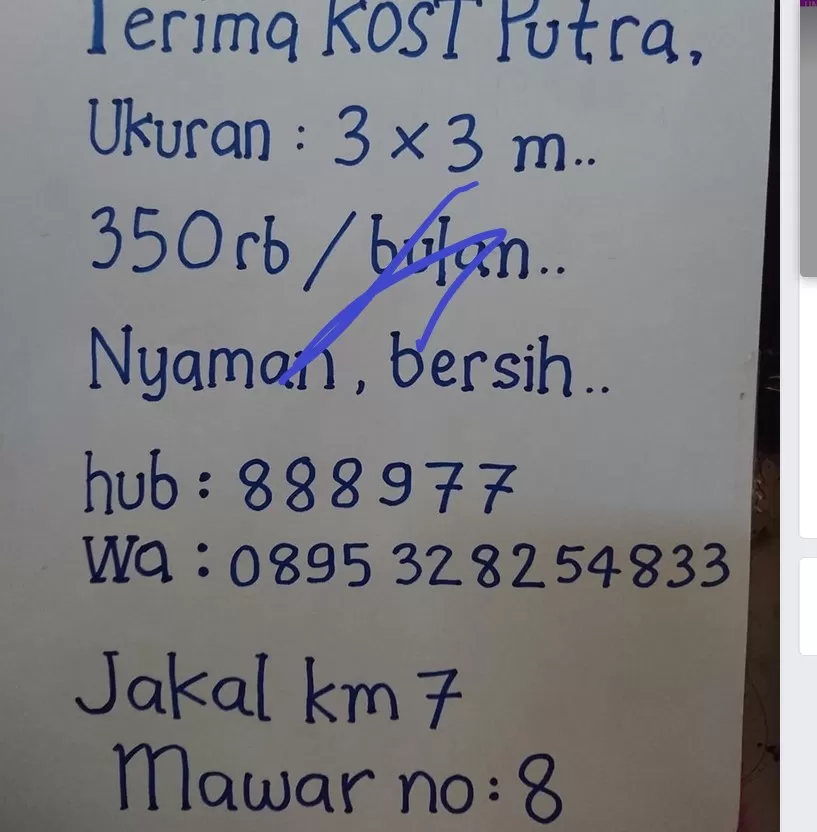 Terima KOST Putra,
Ukuran : 3 x 3 m..
350rb / bulan..
Nyaman, bersih..
hub : 888977
Wa : 0895 328254833
Jakal km 7
Mawar no : 8